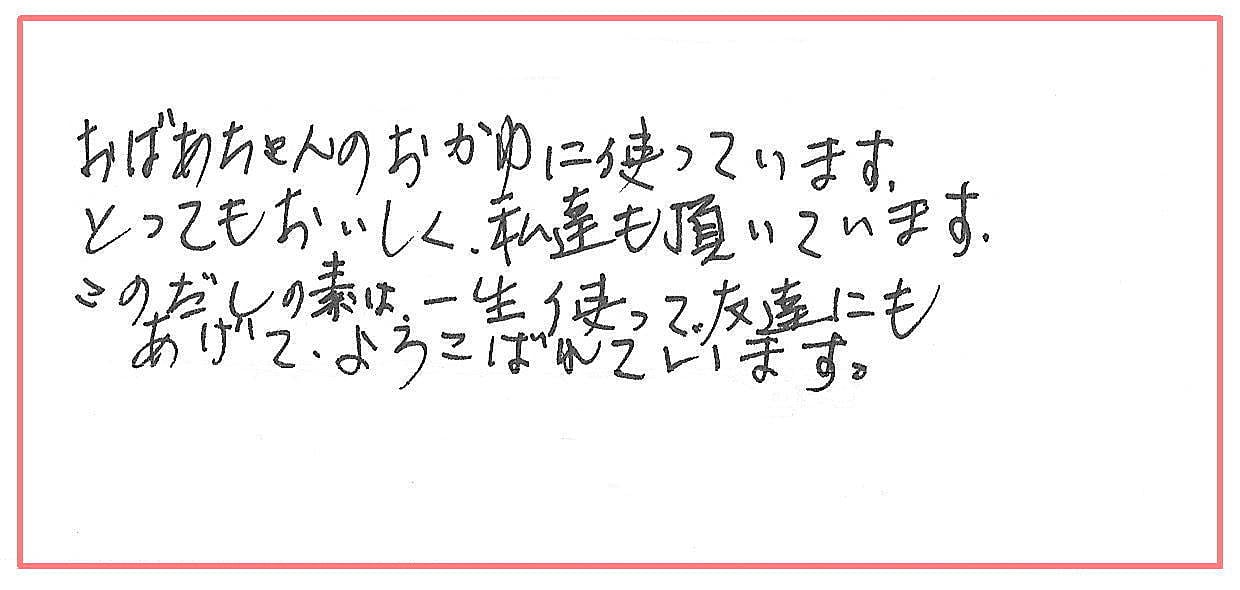 おばあちゃんのおかゆに使っています。
とってもおいしく、私達も頂いています。
このだしの素は、一生使って、友達にも
あげて、よろこばれています。